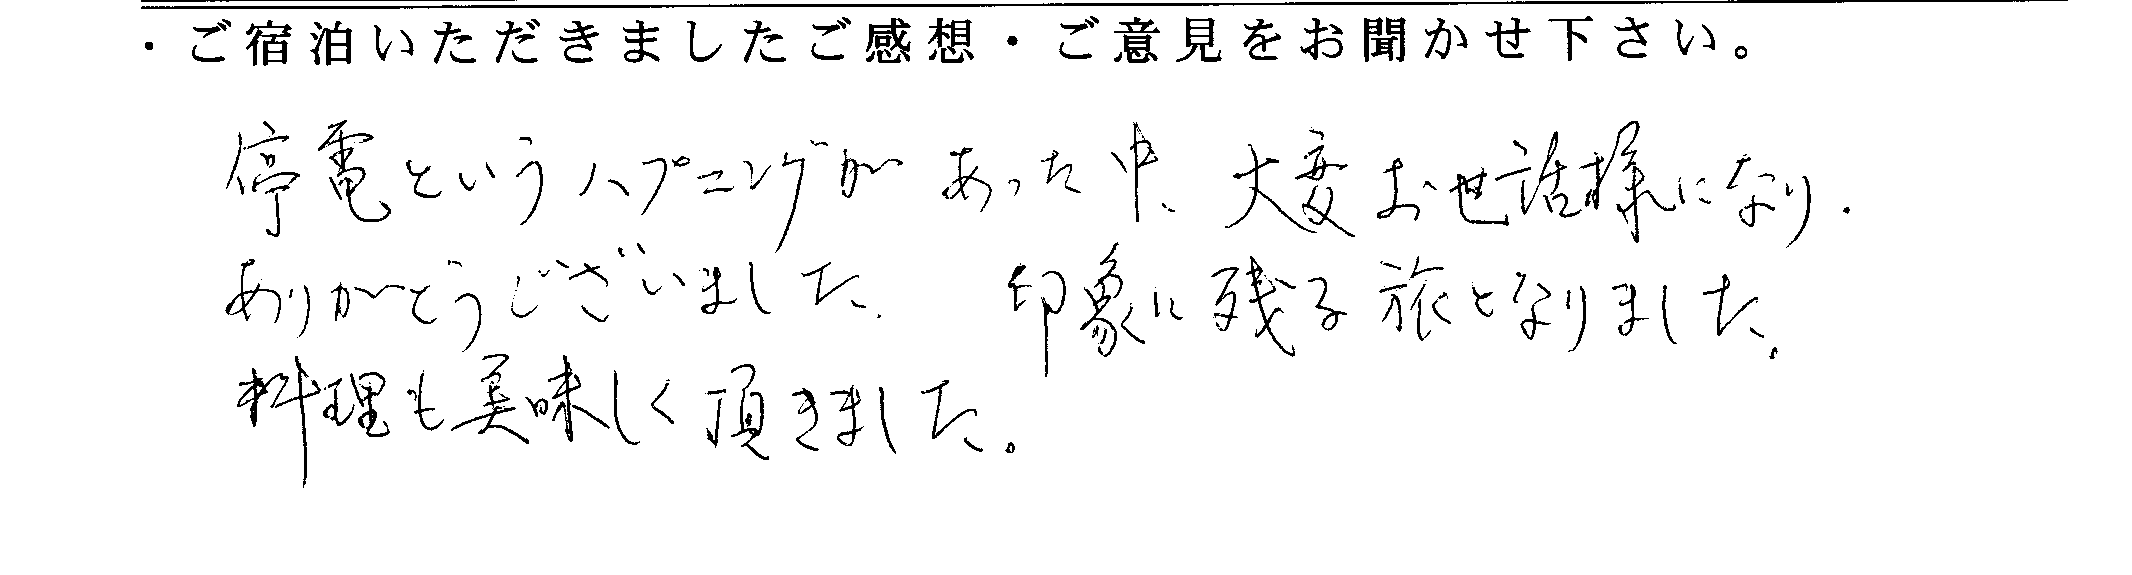 ・ご宿泊いただきましたご感想・ご意見をお聞かせ下さい。
停電というハプニングがあった中、大変お世話様になり、
ありがとうございました。 印象に残る旅となりました。
料理も美味しく頂きました。